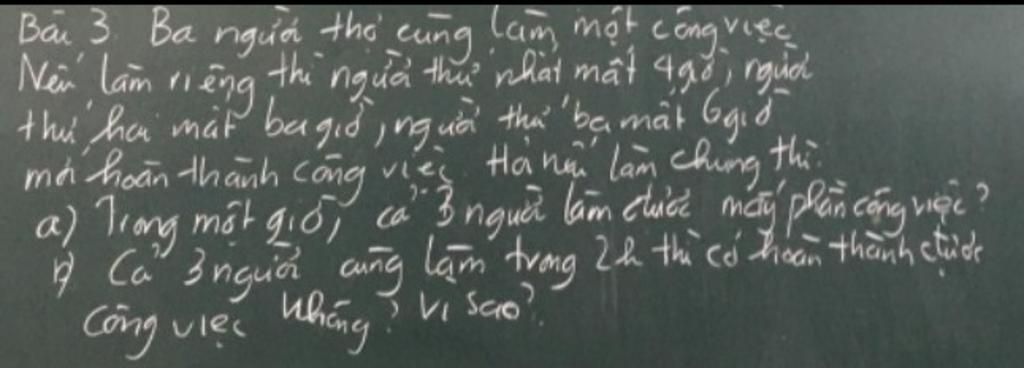 Bài 3. Ba người thợ cùng làm một công việc
Nếu làm riêng thì người thứ nhất mất 4 giờ, người
thứ hai mất ba giờ, người thứ ba mất 6 giờ
mới hoàn thành công việc. Hỏi nếu làm chung thì:
a) Trong một giờ, cả 3 người làm được mấy phần công việc?
b) Cả 3 người cùng làm trong 2h thì có hoàn thành được
công việc không? Vì sao?